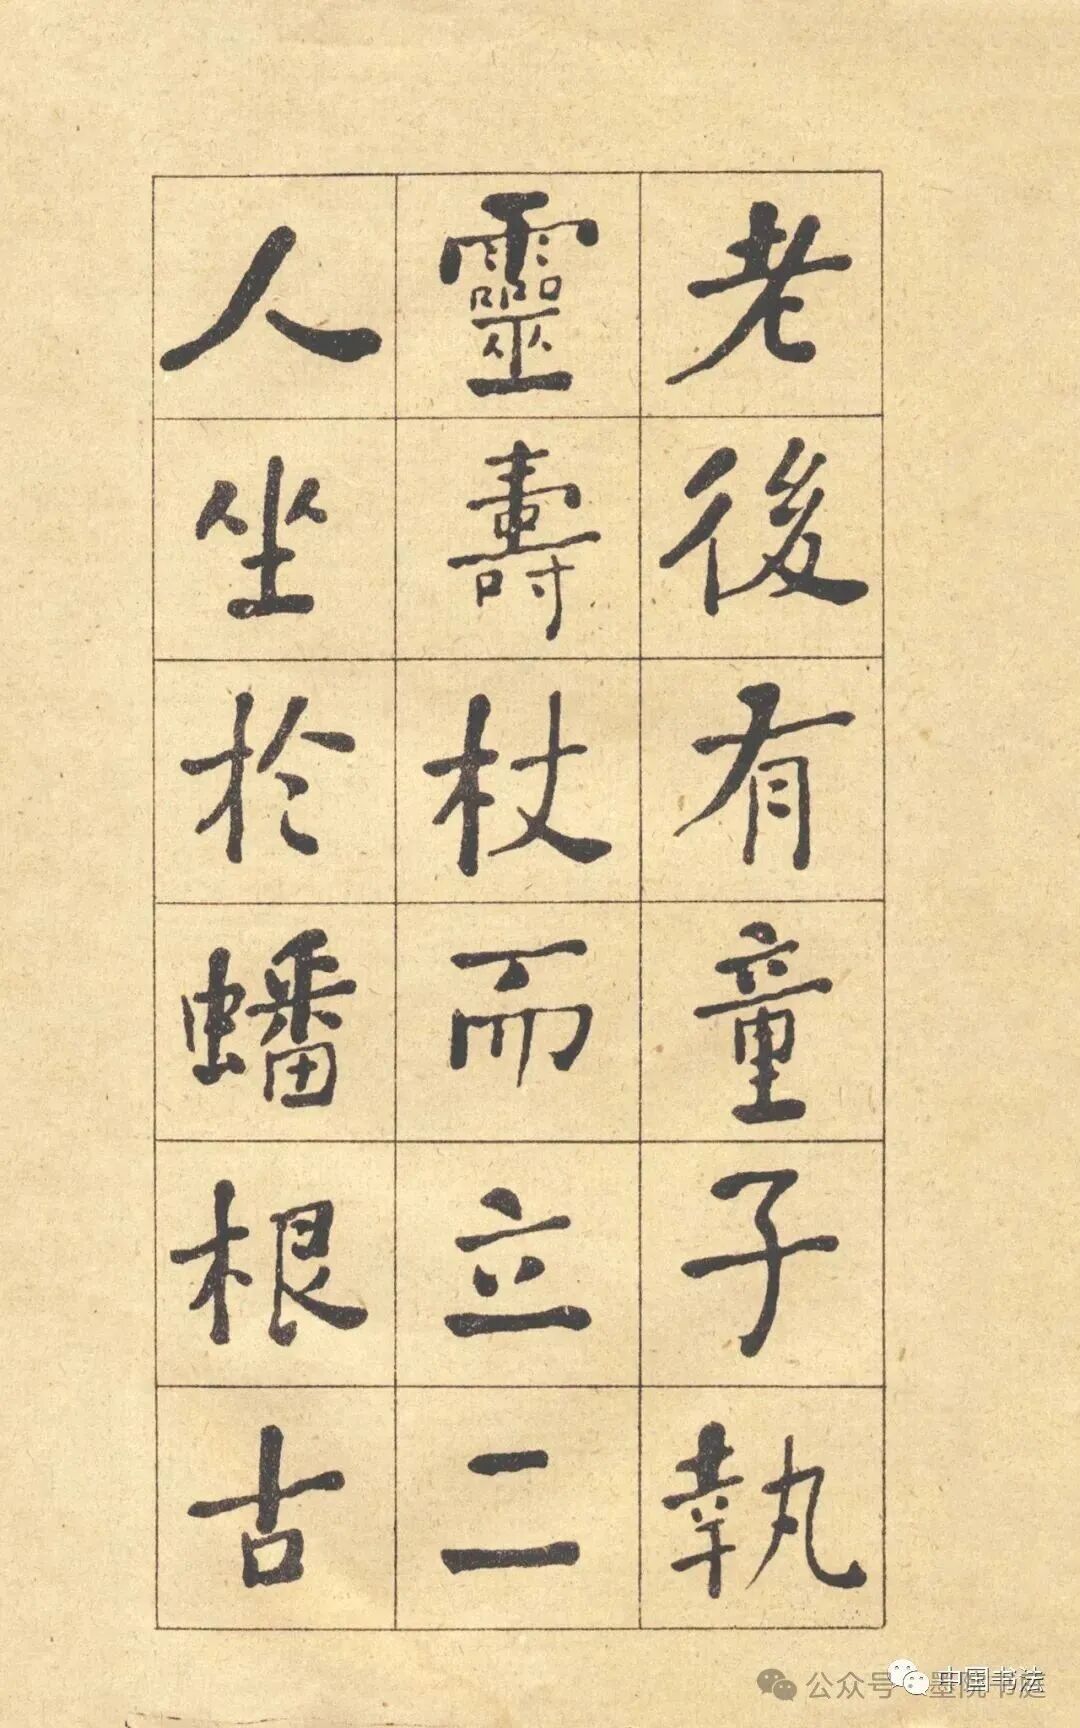 老後有童子執
靈壽杖而立二
人坐於蟠根古
公众号·墨院书庭
中国书法